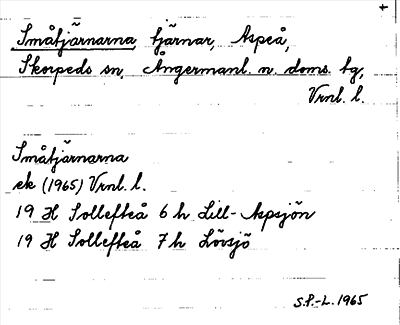 Småtjärnarna, tjärnar, Aspeå,
Skorpeds sn, Ångermanl. n. doms. tg,
Vrnl. l.
Småtjärnarna
ek (1965) Vrnl. l.
19 H Sollefteå 6 h Lill-Aspsjön
19 H Sollefteå 7 h Lövsjö
S.P.-L. 1965